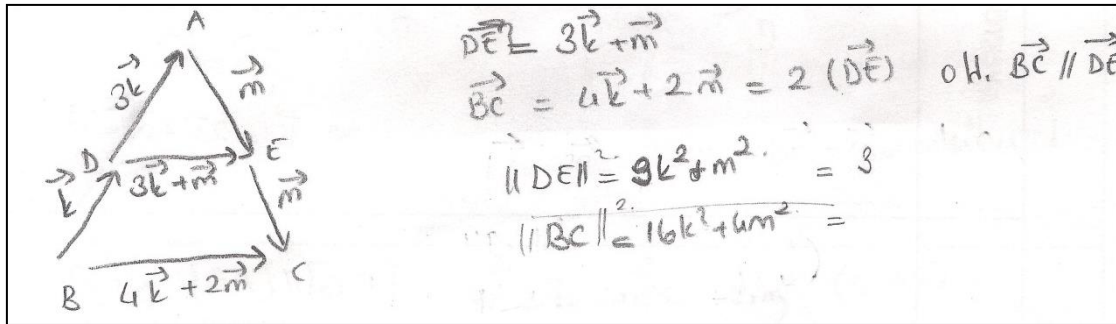 A
3k⃗
m⃗
D
E
3k⃗+m⃗
k⃗
m⃗
B
4k⃗+2m⃗
C
DE⃗ = 3k⃗+m⃗
BC⃗ = 4k⃗+2m⃗ = 2(DE⃗) o.H. BC⃗ // DE⃗
||DE||² = 9k²+m² = 3
||BC||² = 16k²+4m² =